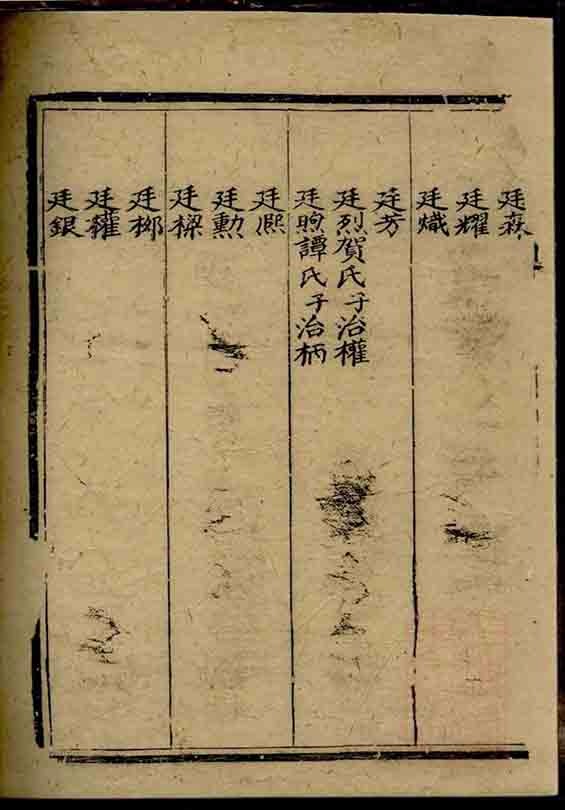 廷森
廷耀
廷熾
廷芳
廷烈賀氏子治權
廷煦譚氏子治柄
廷熙
廷勳
廷樑
廷梆
廷
廷銀